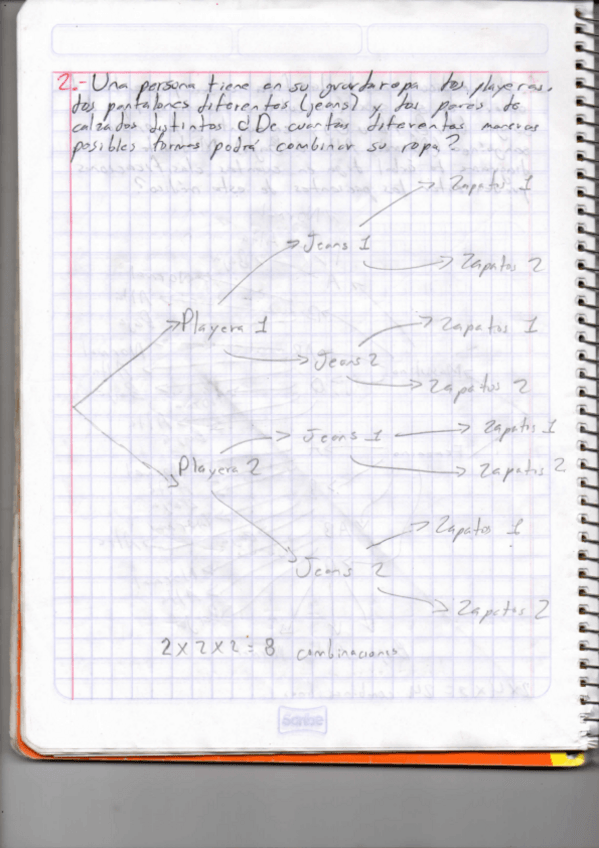 2.- Una persona tiene en su guardaropa dos playeras,
dos pantalones diferentes (jeans) y dos pares de
calzados distintos ¿De cuantas diferentes maneras
posibles formas podrá combinar su ropa?
Zapatos 1
Jeans 1
Zapatos 2
Playera 1
Zapatos 1
Jeans 2
Zapatos 2
Jeans 1
Zapatos 1
Playera 2
Zapatos 2
Zapatos 1
Jeans 2
Zapatos 2
2 x 2 x 2 = 8 combinaciones
Scribe